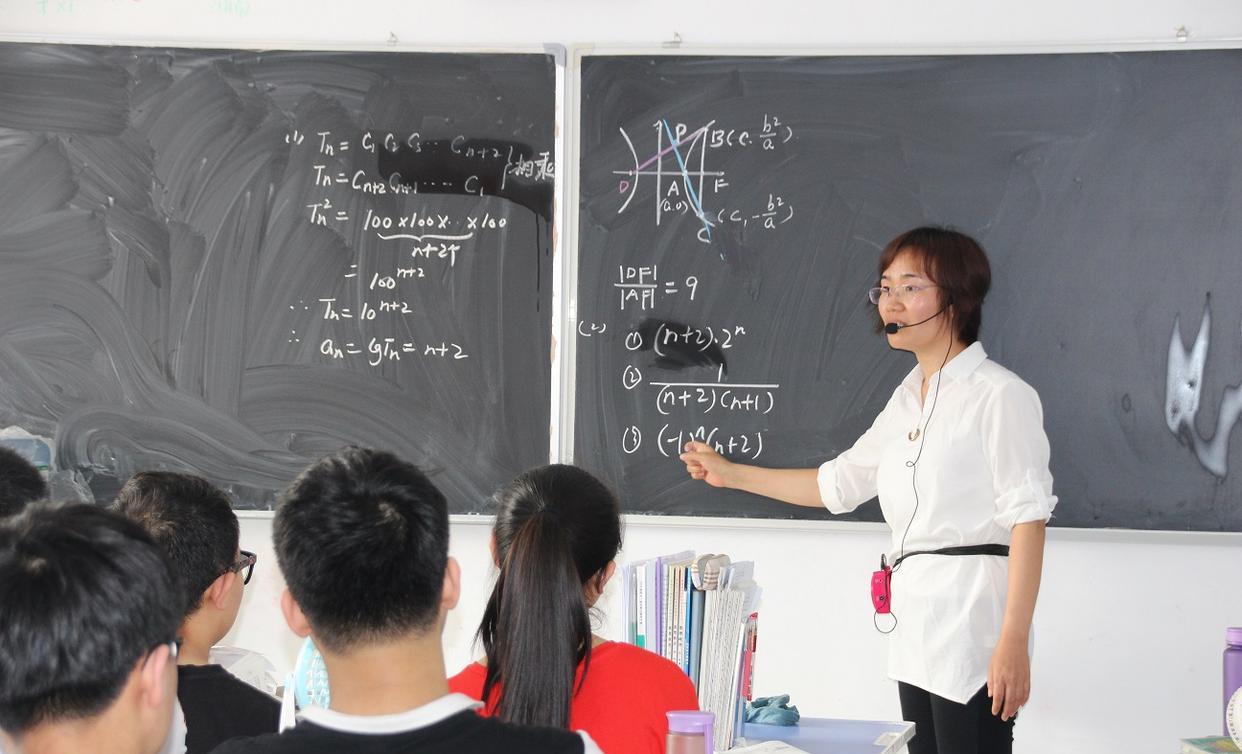 (1) Tn = C1 C2 C3 ... Cn+2 } 相乘
Tn = Cn+2 Cn+1 .... C1
Tn² = 100×100×...×100
n+2个
= 100^(n+2)
∴ Tn = 10^(n+2)
∴ an = lgTn = n+2
P
B(c, b²/a)
D
A
F
(a,0)
(c, -b²/a)
C
|DF|/|AF| = 9
(2)
① (n+2)·2ⁿ
② 1/((n+2)(n+1))
③ (-1)ⁿ(n+2)